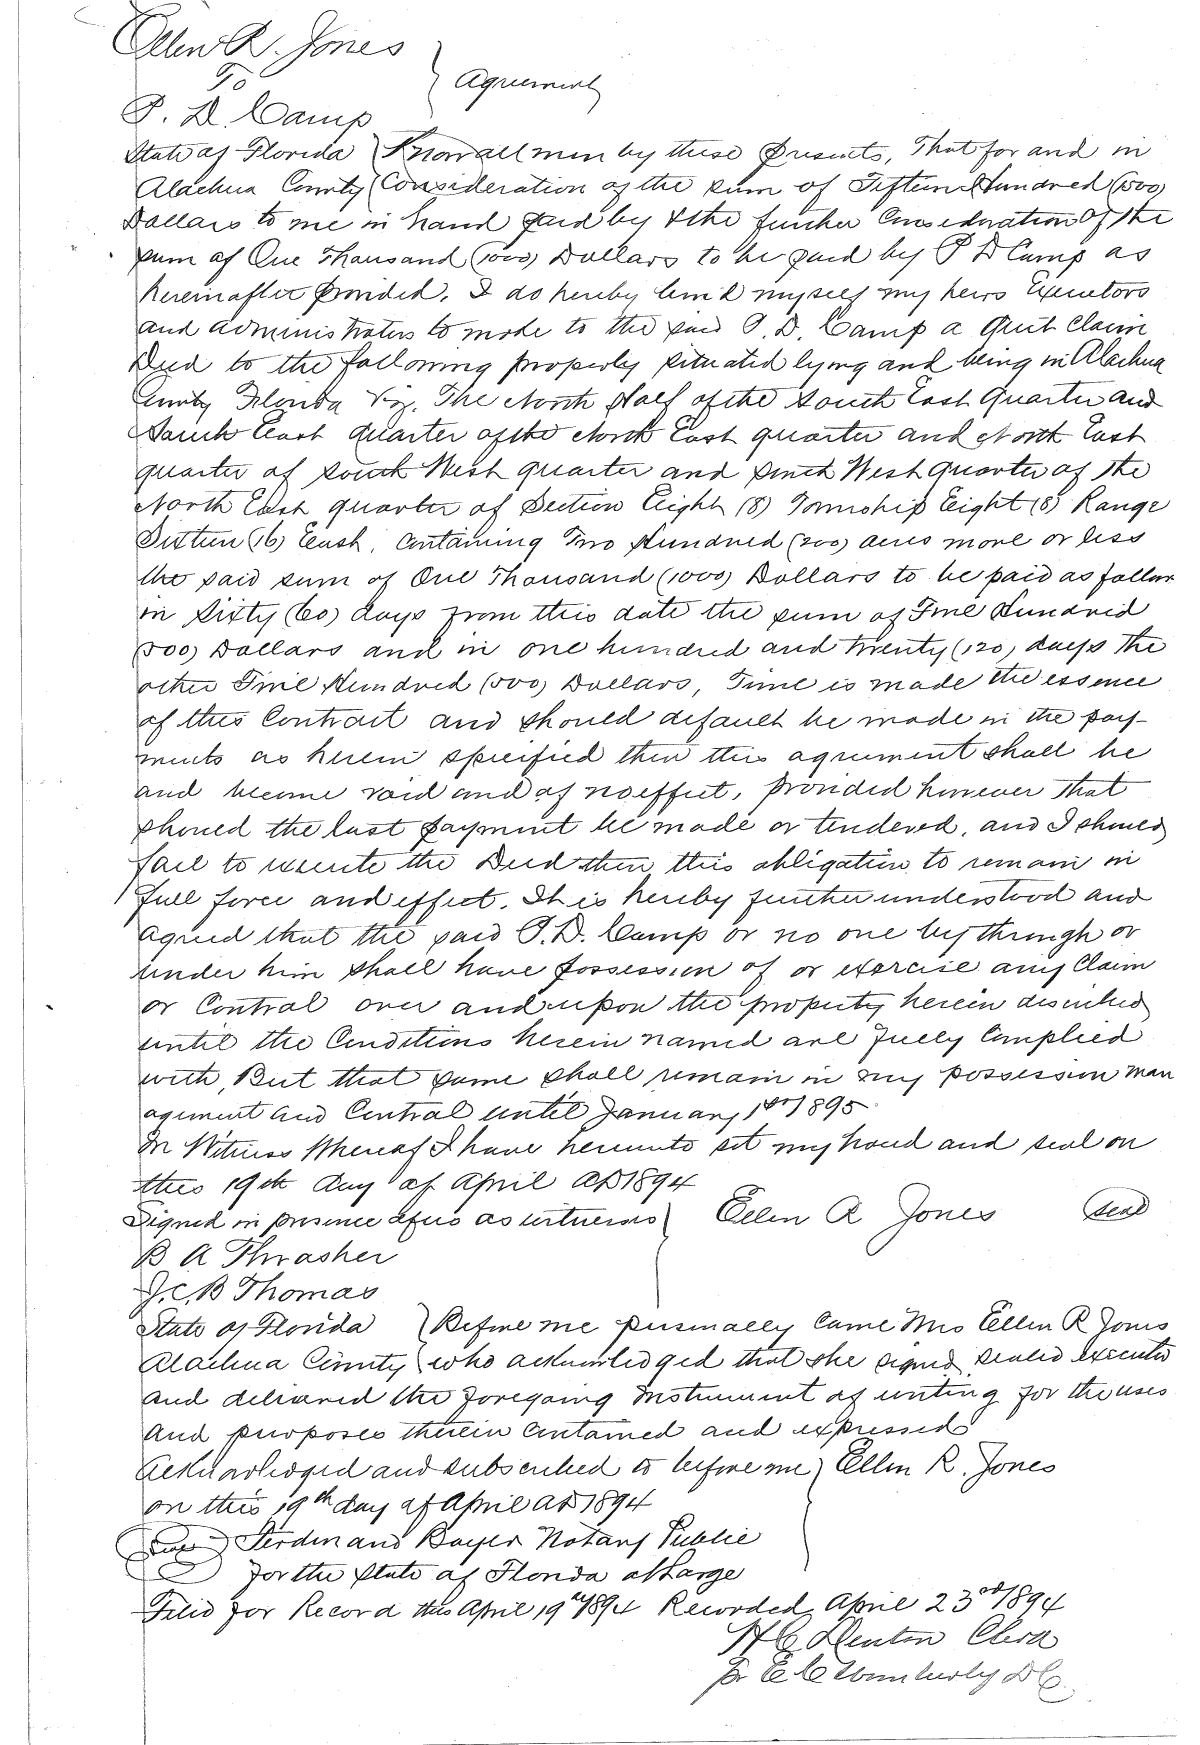 Ellen R. Jones
To
Agreement
P. D. Camp
State of Florida Know all men by these presents, That for and in
Alachua County Consideration of the sum of Fifteen Hundred (1500)
Dollars to me in hand paid by & the further Consideration of the
sum of One Thousand (1000) Dollars to be paid by P D Camp as
hereinafter provided, I do hereby bind myself my heirs Executors
and administrators to make to the said P. D. Camp a Quit Claim
Deed to the following property situated lying and being in Alachua
County Florida Viz. The North Half of the South East Quarter and
South East quarter of the North East quarter and North East
quarter of South West quarter and South West quarter of the
North East quarter of Section Eight (8) Township Eight (8) Range
Sixteen (16) East, Containing Two Hundred (200) acres more or less
the said sum of One Thousand (1000) Dollars to be paid as follows
in Sixty (60) days from this date the sum of Five Hundred
(500) Dollars and in one hundred and twenty (120) days the
other Five Hundred (500) Dollars, Time is made the essence
of this Contract and should default be made in the pay-
ments as herein specified then this agreement shall be
and become void and of no effect, provided however that
should the last payment be made or tendered, and I should
fail to execute the Deed then this obligation to remain in
full force and effect. It is hereby further understood and
agreed that the said P. D. Camp or no one by through or
under him shall have possession of or exercise any Claim
or Control over and upon the property herein described
until the Conditions herein named are fully Complied
with, But that same shall remain in my possession man
agement and Control until January 1st 1895.
In Witness Whereof I have hereunto set my hand and seal on
this 19th day of April AD 1894
Signed in presence of us as witnesses Ellen R Jones Seal
B A Thrasher
J. C. B Thomas
State of Florida Before me personally Came Mrs Ellen R Jones
Alachua County who acknowledged that she signed, sealed executed
and delivered the foregoing instrument of writing for the uses
and purposes therein contained and expressed
Acknowledged and subscribed to before me Ellen R. Jones
on this 19th day of April AD 1894
Seal Ferdinand Bayer Notary Public
for the State of Florida at Large
Filed for Record this April 19th 1894 Recorded April 23rd 1894
H C Denton Clerk
Pr E C Wimberly D C